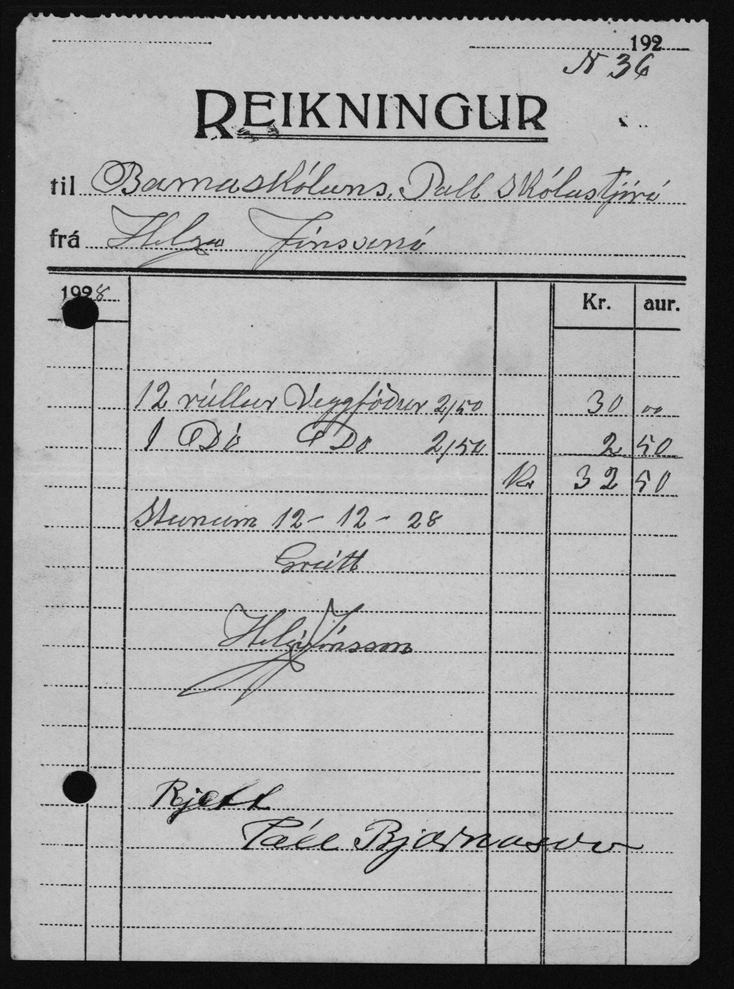 192
N 36
REIKNINGUR
til Barnaskólans, Páll skólastjóri
frá Helga Jónssyni
1928 Kr. aur.
12 rúllur Veggfóður 2/50 30 00
1 Do Do 2/50 2 50
Kr 32 50
12-12-28
Greitt
Helgi Jónsson
Rjett
Páll Bjarnason